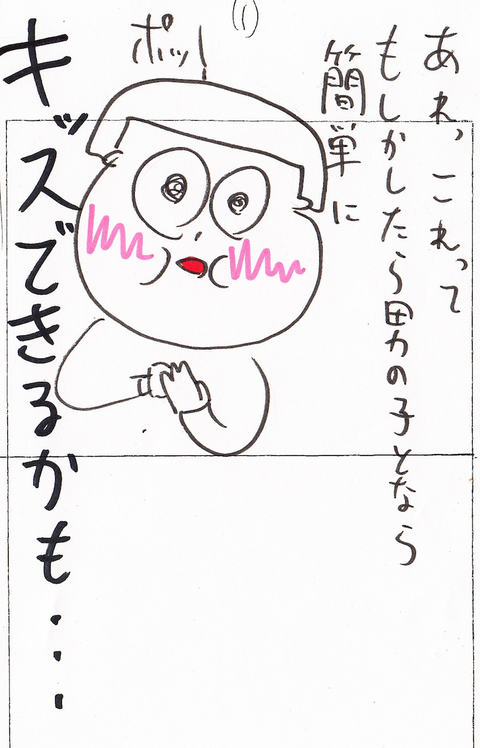 (1)
あれ、これって
もしかしたら男の子となら
簡単に
ポッ!
キッスできるかも・・・